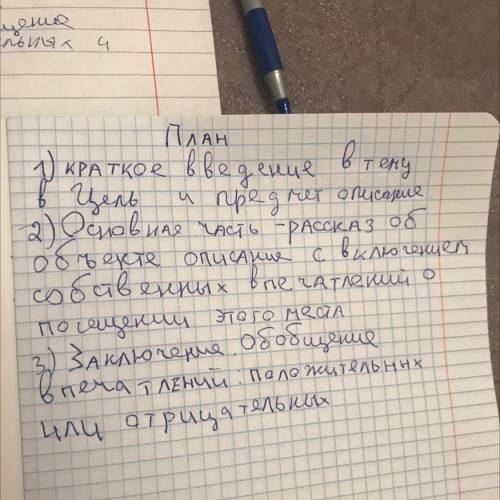 щение
льных ч
План
1) краткое введение в тему
в цель и предмет описание
2) Основная часть - рассказ об
объекте описание с включением
собственных впечатлений о
посещении этого места
3) Заключение. Обобщение
впечатлений: положительных
или отрицательных